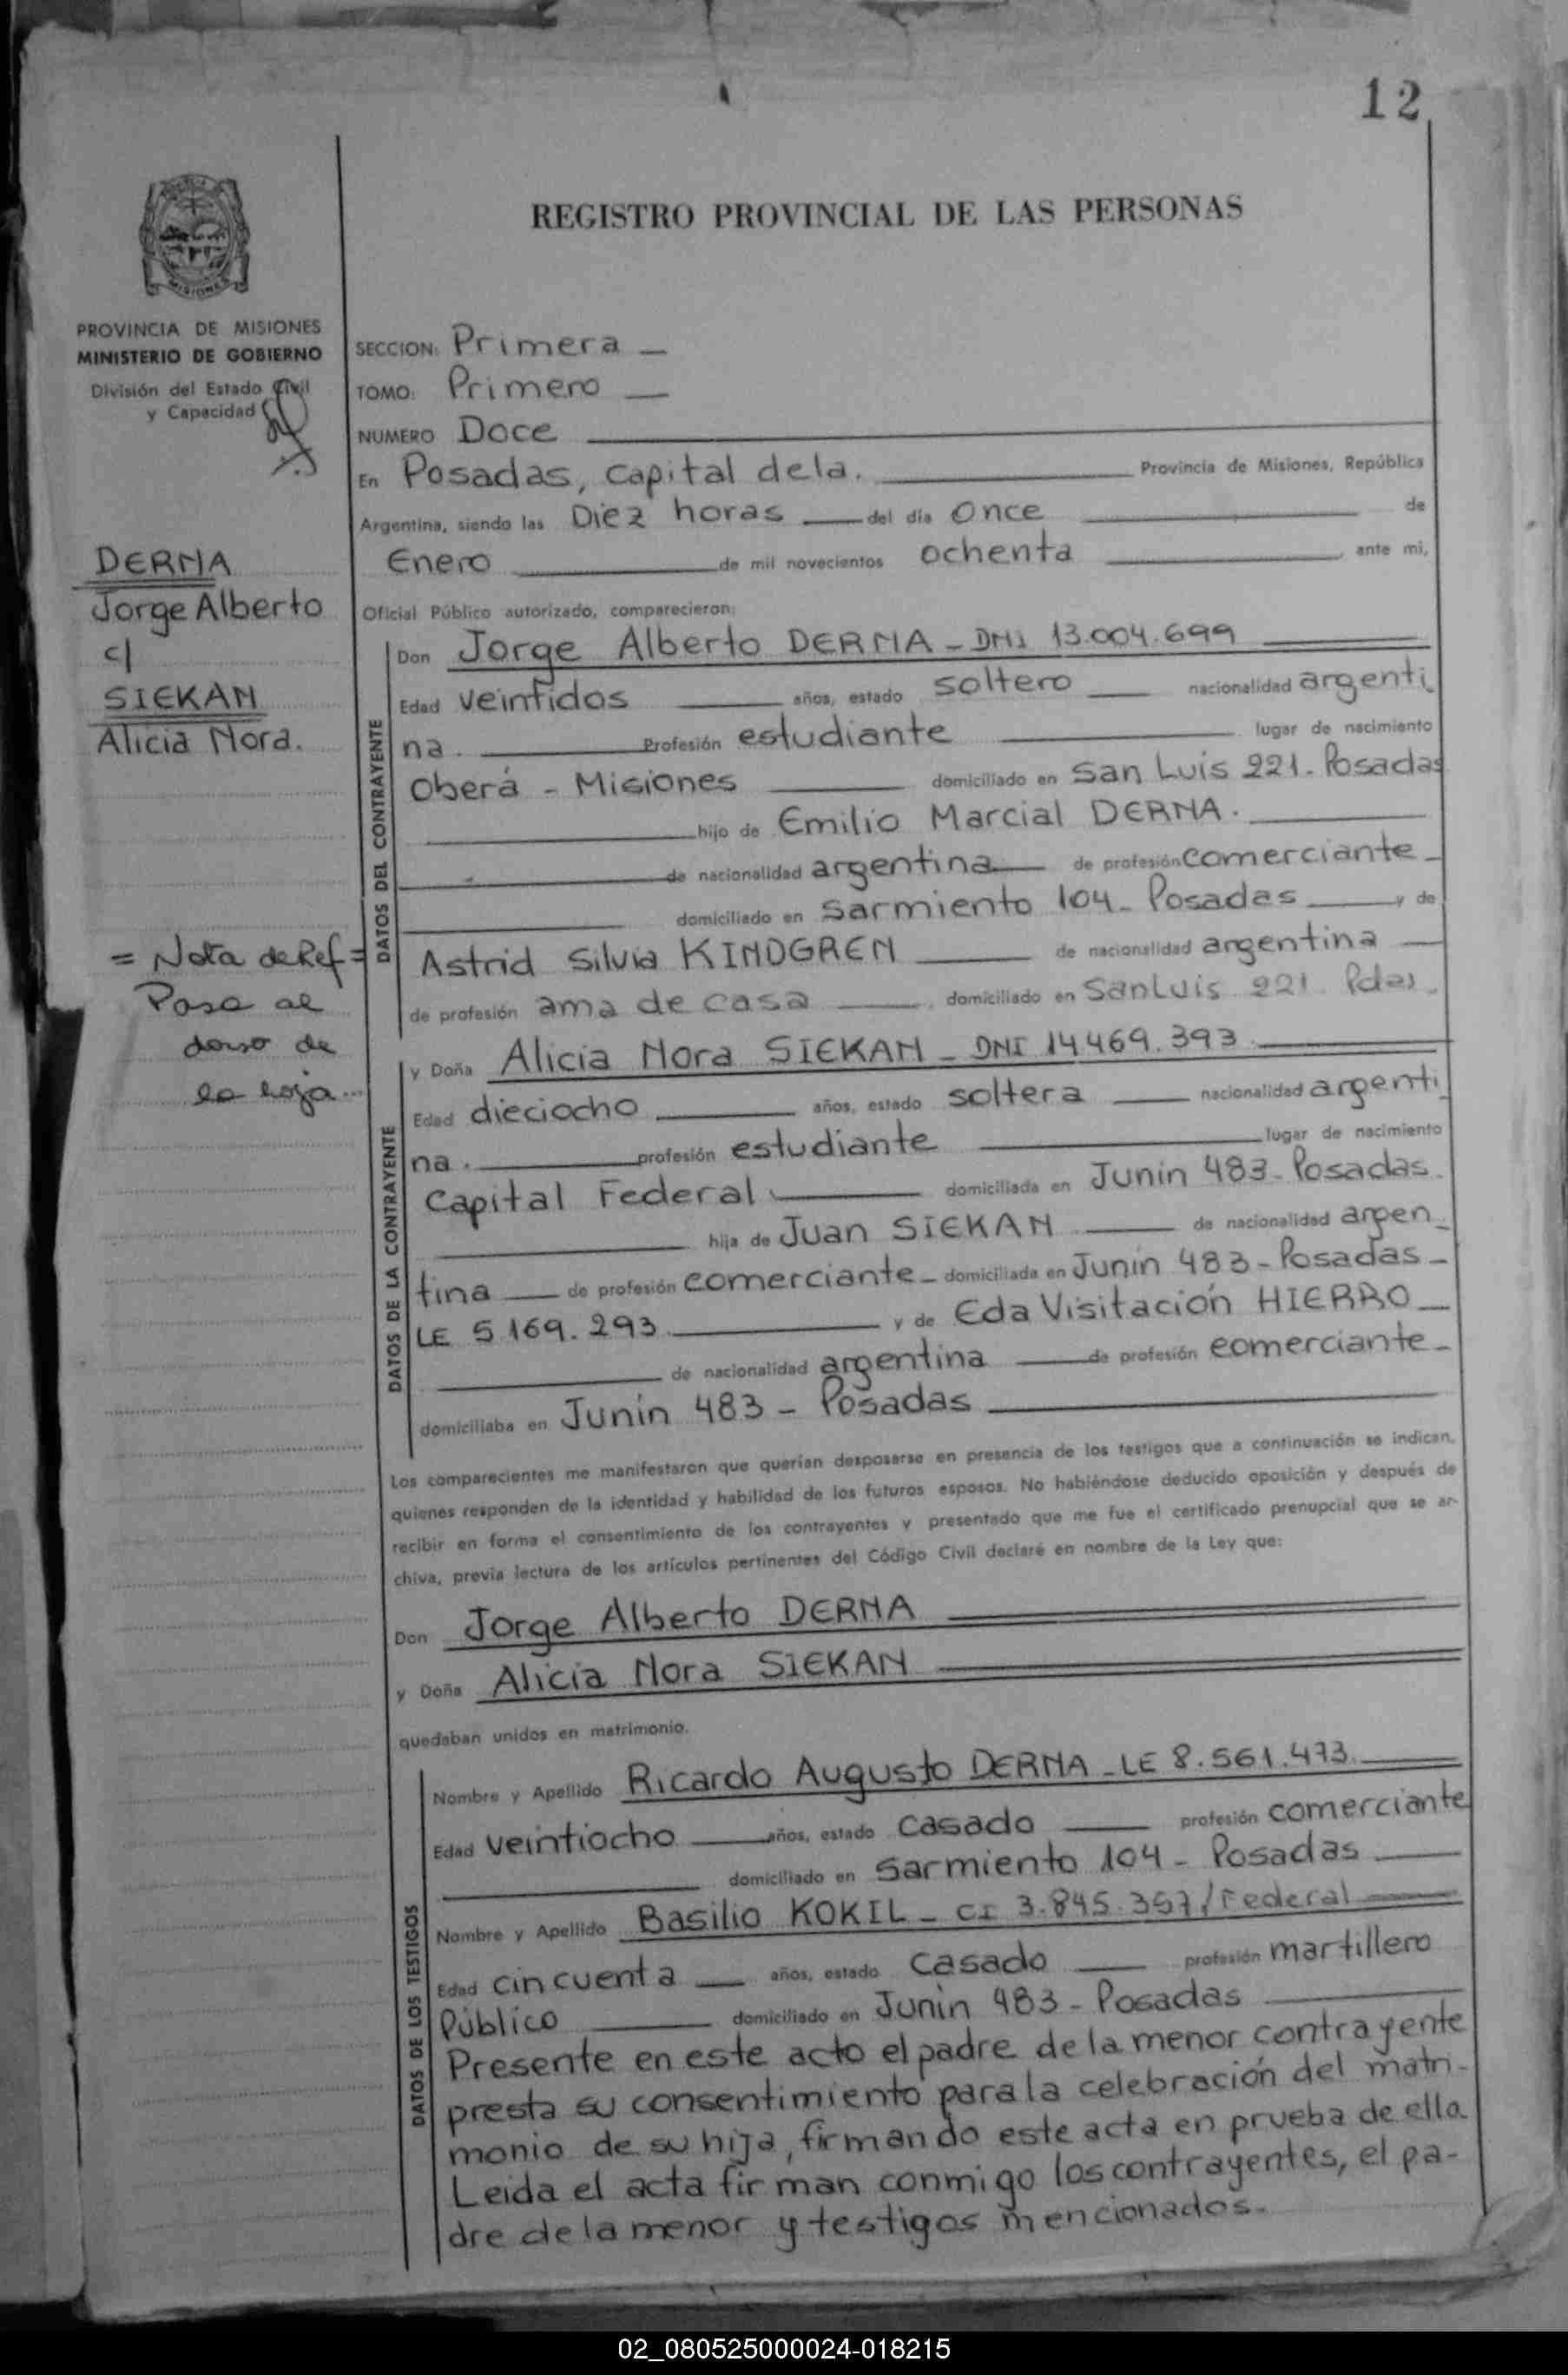 12
REGISTRO PROVINCIAL DE LAS PERSONAS
MISIONES
PROVINCIA DE MISIONES
MINISTERIO DE GOBIERNO
División del Estado Civil
y Capacidad
DERNA
Jorge Alberto
c/
SIEKAN
Alicia Nora.
= Nota de Ref =
Pasa al
dorso de
la hoja...
SECCION: Primera —
TOMO: Primero —
NUMERO Doce
En Posadas, capital dela. Provincia de Misiones, República
Argentina, siendo las Diez horas — del día Once de
Enero de mil novecientos ochenta , ante mi,
Oficial Público autorizado, comparecieron:
DATOS DEL CONTRAYENTE
Don Jorge Alberto DERNA - DNI 13.004.699
Edad veintidos años, estado soltero nacionalidad argenti
na. Profesión estudiante lugar de nacimiento
Oberá - Misiones domiciliado en San Luis 221. Posadas
hijo de Emilio Marcial DERNA.
de nacionalidad argentina de profesión comerciante -
domiciliado en Sarmiento 104 - Posadas y de
Astrid Silvia KINDGREN de nacionalidad argentina
de profesión ama de casa , domiciliado en San Luis 221 Pdas.
DATOS DE LA CONTRAYENTE
y Doña Alicia Nora SIEKAN - DNI 14.469.393
Edad dieciocho años, estado soltera nacionalidad argenti
na. profesión estudiante lugar de nacimiento
Capital Federal domiciliada en Junín 483 - Posadas.
hija de Juan SIEKAN de nacionalidad argen-
tina de profesión comerciante - domiciliada en Junín 483 - Posadas -
LE 5.169.293. y de Eda Visitación HIERRO
de nacionalidad argentina de profesión comerciante -
domiciliaba en Junín 483 - Posadas
Los comparecientes me manifestaron que querían desposarse en presencia de los testigos que a continuación se indican,
quienes responden de la identidad y habilidad de los futuros esposos. No habiéndose deducido oposición y después de
recibir en forma el consentimiento de los contrayentes y presentado que me fue el certificado prenupcial que se ar-
chiva, previa lectura de los artículos pertinentes del Código Civil declaré en nombre de la Ley que:
Don Jorge Alberto DERNA
y Doña Alicia Nora SIEKAN
quedaban unidos en matrimonio.
DATOS DE LOS TESTIGOS
Nombre y Apellido Ricardo Augusto DERNA - LE 8.561.473.
Edad veintiocho años, estado casado profesión comerciante
domiciliado en Sarmiento 104 - Posadas
Nombre y Apellido Basilio KOKIL - CI 3.845.357/Federal
Edad cincuenta años, estado casado profesión martillero
Público domiciliado en Junín 483 - Posadas
Presente en este acto el padre de la menor contrayente
presta su consentimiento para la celebración del matri-
monio de su hija, firmando este acta en prueba de ello.
Leida el acta firman conmigo los contrayentes, el pa-
dre de la menor y testigos mencionados.
02_080525000024-018215